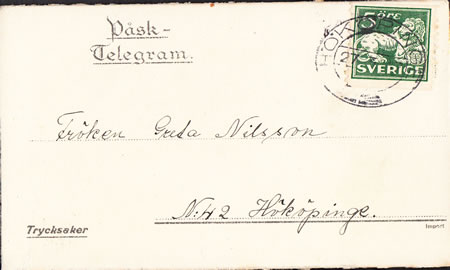 Påsk-
Telegram.
5 ÖRE
SVERIGE
Fröken Greta Nilsson
N:42 Hököpinge.
Trycksaker
Import